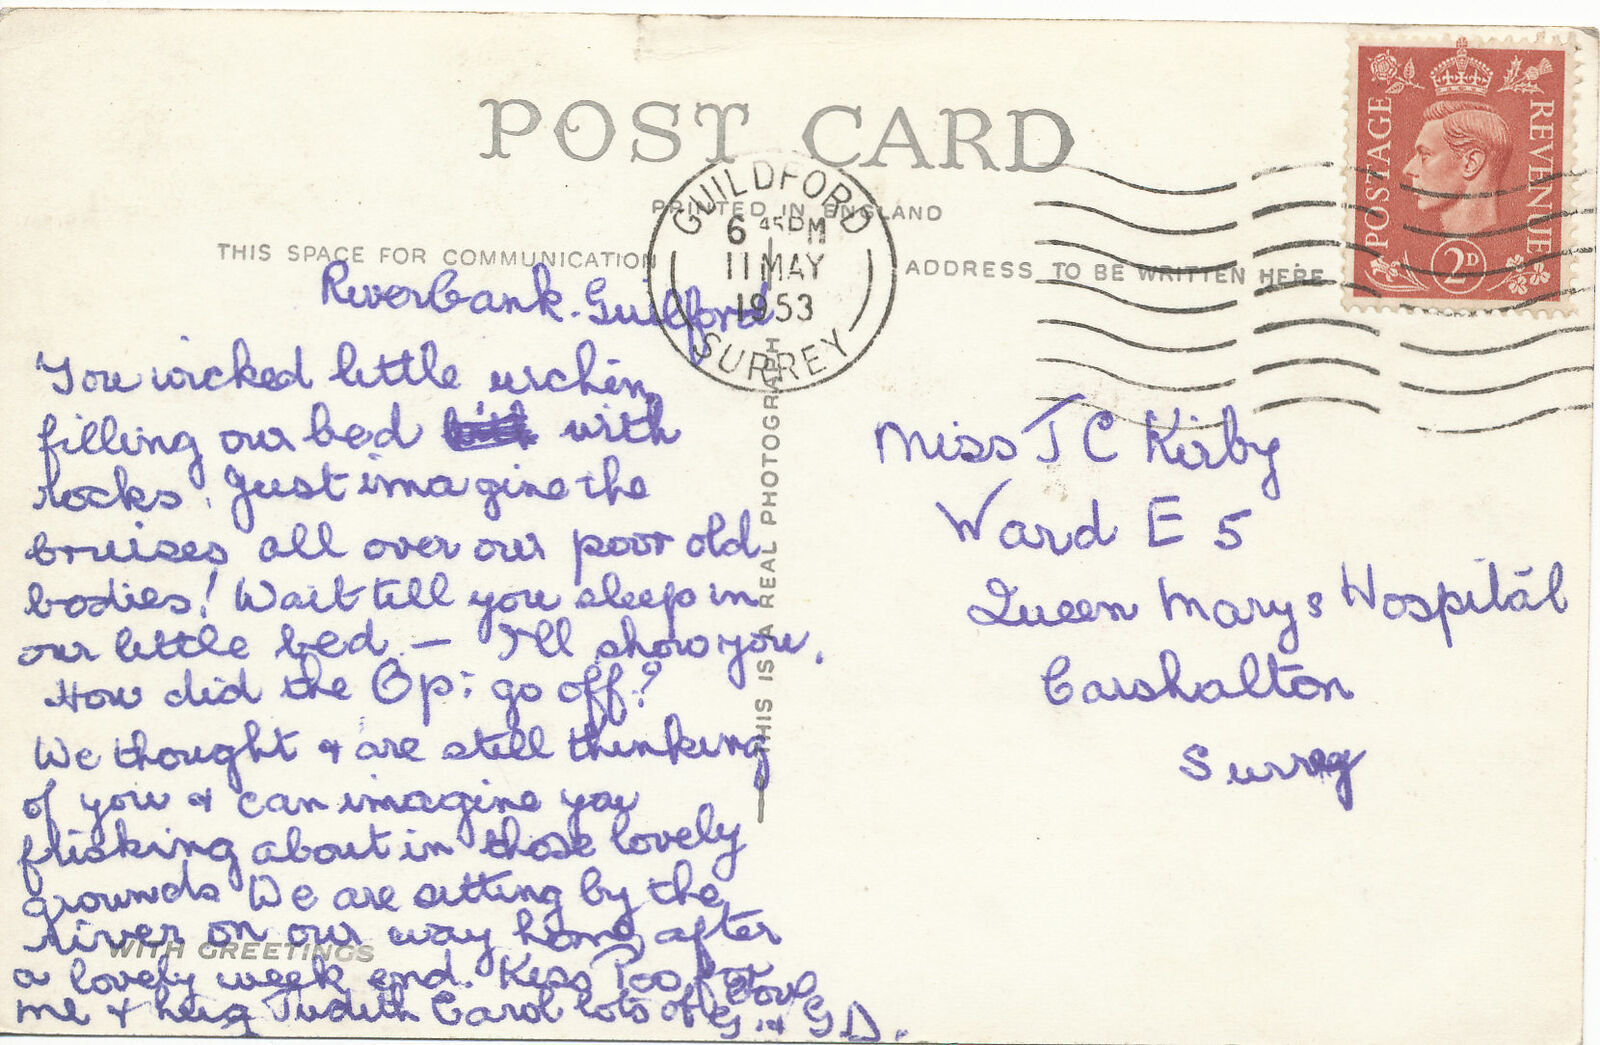 POST CARD
PRINTED IN ENGLAND
THIS SPACE FOR COMMUNICATION
ADDRESS TO BE WRITTEN HERE
GUILDFORD
6 45 PM
11 MAY
1953
SURREY
POSTAGE
REVENUE
2D
Riverbank. Guilford
You wicked little urchin,
filling our bed with
rocks. Just imagine the
bruises all over our poor old
bodies! Wait till you sleep in
our little bed — I'll show you.
How did the Op: go off?
We thought & are still thinking
of you & can imagine you
frisking about in those lovely
grounds We are sitting by the
river on our way home, after
a lovely week end. Kiss Poo for
me & hug Judith Carol lots of love
G & G.D.
WITH GREETINGS
THIS IS A REAL PHOTOGRAPH
Miss J C Kirby
Ward E 5
Queen Marys Hospital
Carshalton
Surrey